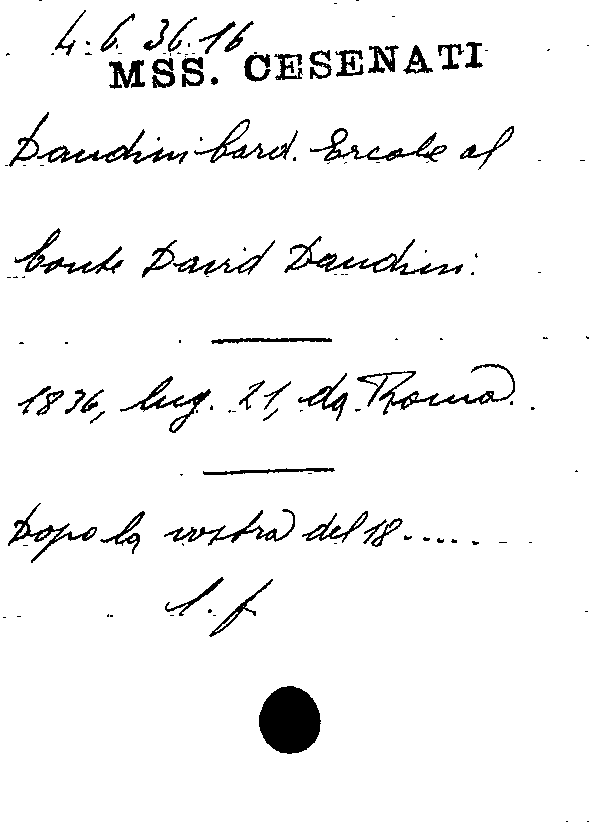 4.6.36.16
MSS. CESENATI
Dandini Card. Ercole al
Conte David Dandini.
1836, lug. 21, da Roma.
Dopo la vostra del 18.....
l. f.